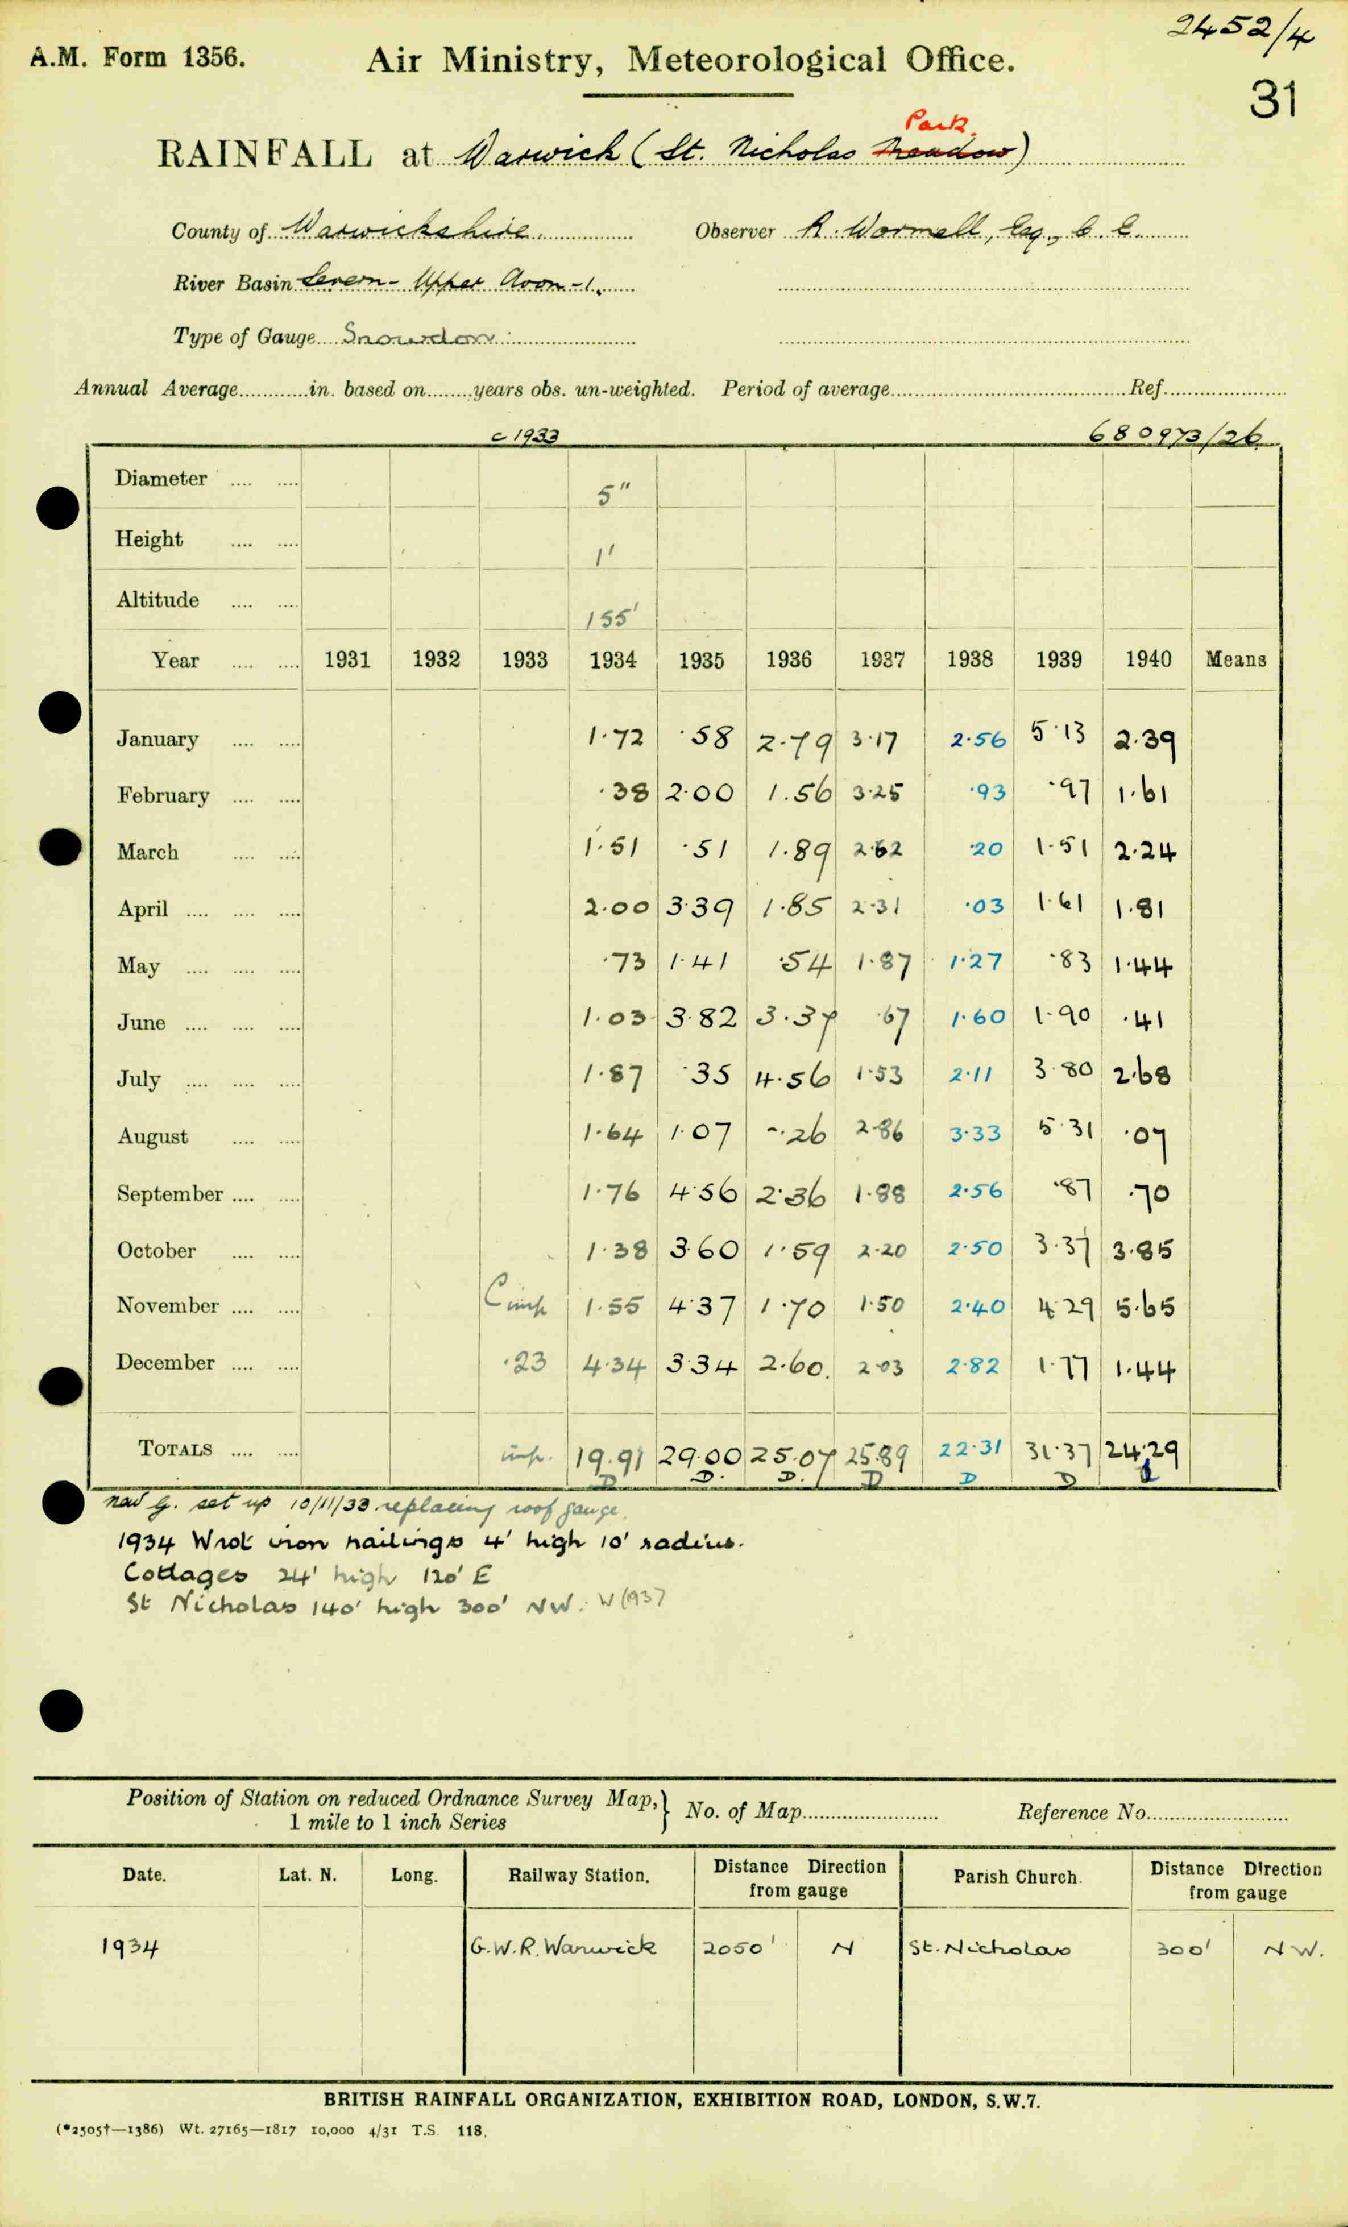 2452/4
A.M. Form 1356. Air Ministry, Meteorological Office.
31
Park.
RAINFALL at Warwick (St. Nicholas Meadow)
County of Warwickshire. Observer R. Wormell, Esq., C. E.
River Basin Severn - Upper Avon - 1.
Type of Gauge Snowdon
Annual Average in. based on years obs. un-weighted. Period of average Ref.
c 1933 680973/26
Diameter 5"
Height 1'
Altitude 155'
Year 1931 1932 1933 1934 1935 1936 1937 1938 1939 1940 Means
January 1.72 .58 2.79 3.17 2.56 5.13 2.39
February .38 2.00 1.56 3.25 .93 .97 1.61
March 1.51 .51 1.89 2.62 .20 1.51 2.24
April 2.00 3.39 1.85 2.31 .03 1.61 1.81
May .73 1.41 .54 1.87 1.27 .83 1.44
June 1.03 3.82 3.37 .67 1.60 1.90 .41
July 1.87 .35 4.56 1.53 2.11 3.80 2.68
August 1.64 1.07 .26 2.86 3.33 5.31 .07
September 1.76 4.56 2.36 1.88 2.56 .87 .70
October 1.38 3.60 1.59 2.20 2.50 3.37 3.85
November C imp 1.55 4.37 1.70 1.50 2.40 4.29 5.65
December .23 4.34 3.34 2.60. 2.03 2.82 1.77 1.44
TOTALS imp. 19.91 29.00 25.07 25.89 22.31 31.37 24.29
D D. D. D D D
new g. set up 10/11/33 replacing roof gauge.
1934 Wrot iron railings 4' high 10' radius.
Cottages 24' high 120' E
St Nicholas 140' high 300' NW. W 1937
Position of Station on reduced Ordnance Survey Map,} No. of Map Reference No.
1 mile to 1 inch Series
Date. Lat. N. Long. Railway Station. Distance Direction from gauge Parish Church. Distance Direction from gauge
1934 G.W.R. Warwick 2050' N St. Nicholas 300' NW.
BRITISH RAINFALL ORGANIZATION, EXHIBITION ROAD, LONDON, S.W.7.
(*2505†—1386) Wt. 27165—1817 10,000 4/31 T.S. 118.